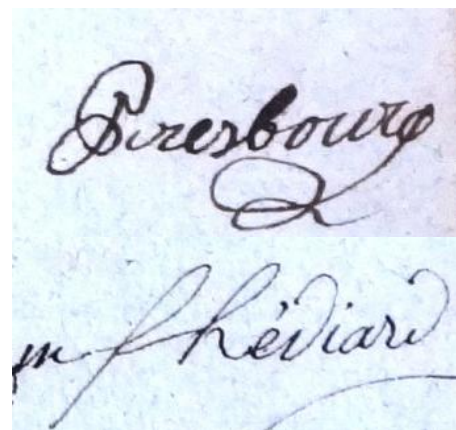 Presbourg
m f hédiard